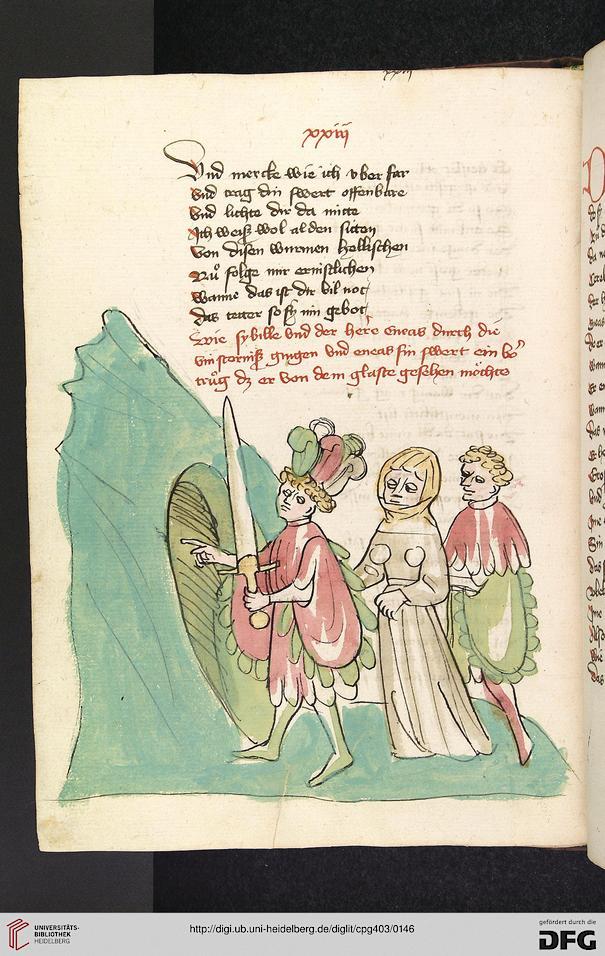 xxiij
Vnd mercke wie ich vber far
vnd trag din swert offenbare
vnd lichte dir da mitte
Ich weiß wol al den sitten
von disen wurmen hellischen
Nů folge mir ernistlichen
wanne das ist dir vil not
das tetter so sy min gebot
Wie sybille vnd der here eneas durch die
vinsterniß gingen vnd eneas sin swert ein bor
trůg dz er von dem glaste gesehen möchte
UNIVERSITÄTS-
BIBLIOTHEK
HEIDELBERG
http://digi.ub.uni-heidelberg.de/diglit/cpg403/0146
gefördert durch die
DFG